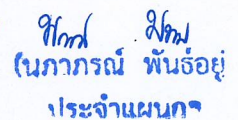 (นภาภรณ์ พันธ์อยู่
ประจำแผนก